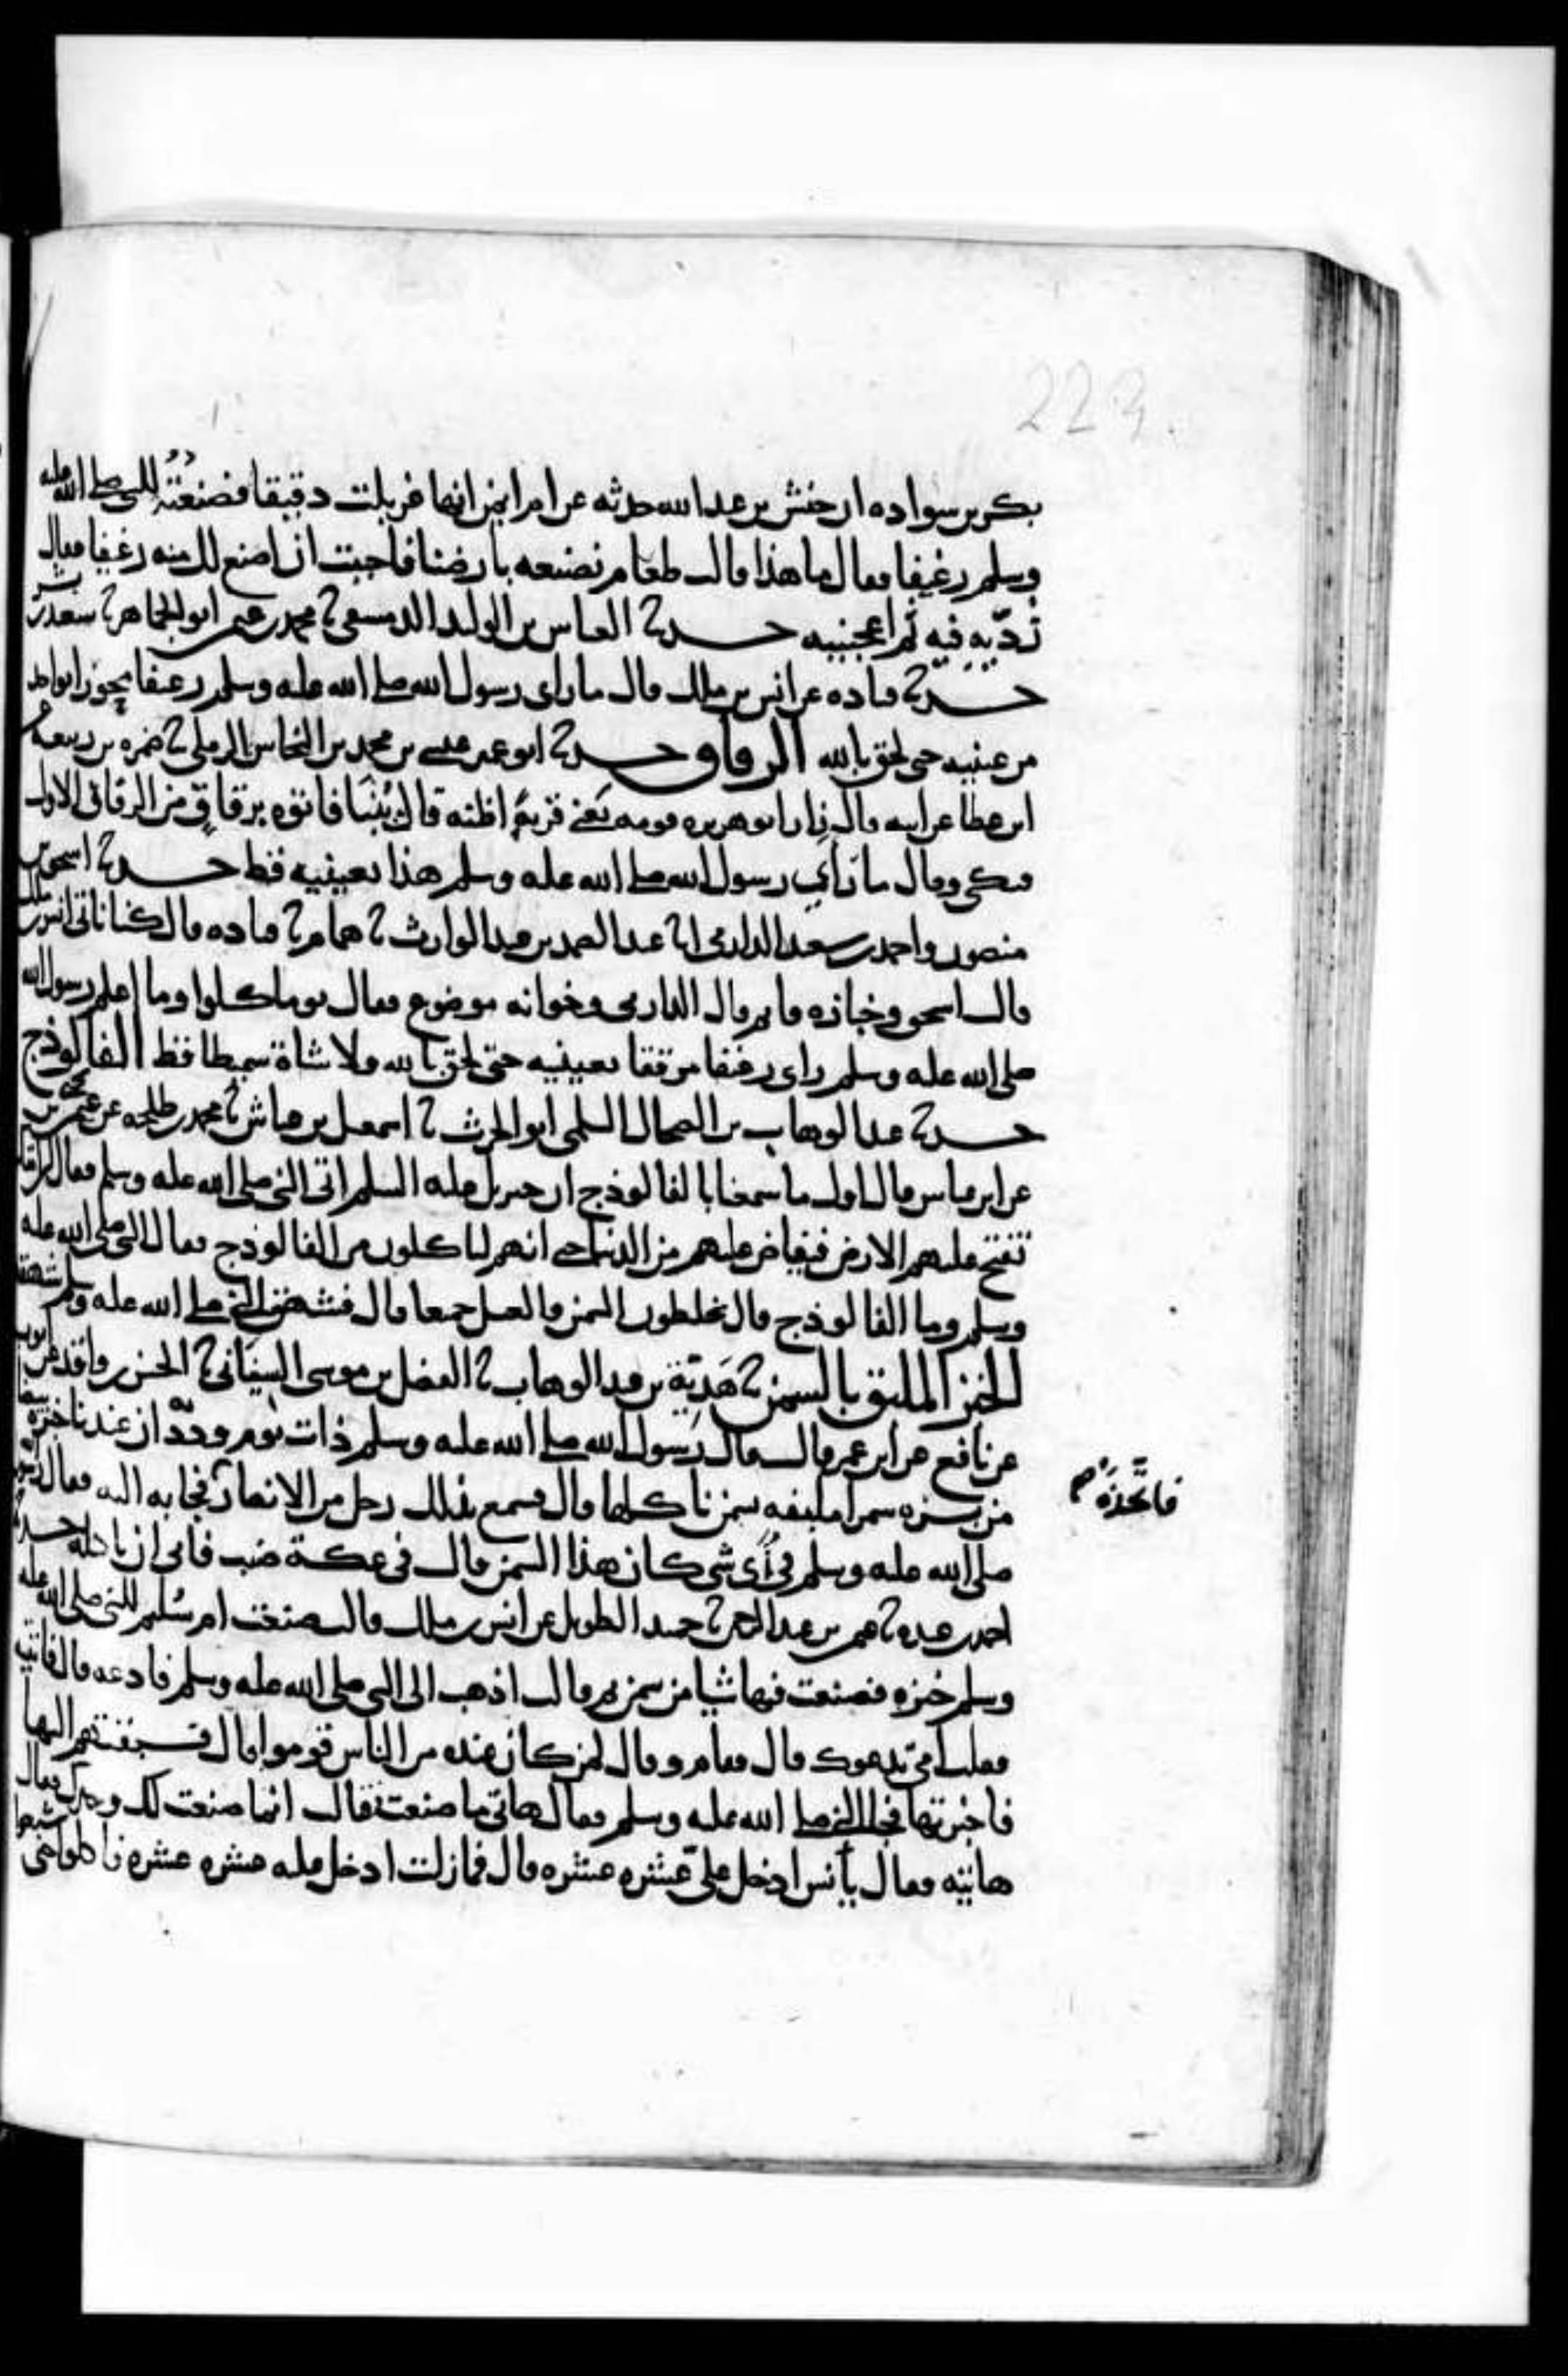 223
بكر بن سواده ان حنش بن عبد الله حدثه عن ام ايمن انها غربلت دقيقا فصنعته للنبي صلى الله عليه
وسلم رغيفا فقال ما هذا قالت طعام نصنعه بارضنا فاحببت ان اصنع لك منه رغيفا فقال
ردّيه فيه ثم اعجنيه حدثنا العباس بن الوليد الدمشقي ثنا محمد بن عثمن ابو الجماهر ثنا سعيد بن بشير
حدثنا قتاده عن انس بن ملك قال ما راى رسول الله صلى الله عليه وسلم رغيفا محورا بواحد
من عينيه حتى لحق بالله الرقاق حدثنا ابو عمير عيسى بن محمد بن النحاس الرملي ثنا ضمره بن ربيعه عن
ابن عطا عن ابيه قال زار ابو هريره قومه يعني قرية اظنه قال يُبْنَا فاتوه برقاق من الرقاق الاول
فبكى وقال ما رَاى رسول الله صلى الله عليه وسلم هذا بعينيه قط حدثنا اسحق بن
منصور واحمد بن سعيد الدارمي ثنا عبد الصمد بن عبد الوارث ثنا همام ثنا قتاده قال كنا ناتي انس بن ملك
قال اسحق وخبازه قايم وقال الدارمي وخوانه موضوع فقال يوما كلوا وما اعلم رسول الله
صلى الله عليه وسلم راى رغيفا مرققا بعينيه حتى لحق بالله ولا شاة سميطا قط الفالوذج
حدثنا عبد الوهاب بن الضحاك السلمي ابو الحرث ثنا اسمعيل بن عياش ثنا محمد بن طلحه عن عثمن بن يحيى
عن ابن عباس قال اول ما سمعنا بالفالوذج ان جبريل عليه السلم اتى النبي صلى الله عليه وسلم فقال ان امتك
تفتح عليهم الارض فيفاض عليهم من الدنيا حتى انهم لياكلون من الفالوذج فقال النبي صلى الله عليه
وسلم وما الفالوذج قال يخلطون السمن والعسل جميعا قال فشهق النبي صلى الله عليه وسلم شهقة
الخبز الملبق بالسمن ثنا هَدِيّة بن عبد الوهاب ثنا الفضل بن موسى السيناني ثنا الحسين بن واقد عن ايوب
عن نافع عن ابن عمر قال قال رسول الله صلى الله عليه وسلم ذات يوم وددت ان عندنا خبزه بيضا
من بره سمرا ملبقه بسمن ناكلها قال فسمع بذلك رجل من الانصار فجا به اليه فقال رسول الله
فاتخذه صح
صلى الله عليه وسلم في أي شي كان هذا السمن قال في عكة ضب فابى ان ياكله حدثنا
احمد بن عبده ثنا عثمن بن عبد الرحمن ثنا حميد الطويل عن انس بن ملك قال صنعت ام سُليم للنبي صلى الله عليه
وسلم خبزه فصنعت فيها شيا من سمن ثم قالت اذهب الى النبي صلى الله عليه وسلم فادعه قال فاتيته
فقلت امي تدعوك قال فقام وقال لمن كان عنده من الناس قوموا قال فسبقتهم اليها
فاخبرتها فجا النبي صلى الله عليه وسلم فقال هاتي ما صنعت فقالت انما صنعت لك وحدك فقال
هاتيه فقال يا انس ادخل عليّ عشره عشره قال فما زلت ادخل عليه عشره عشره فاكلوا حتى شبعوا